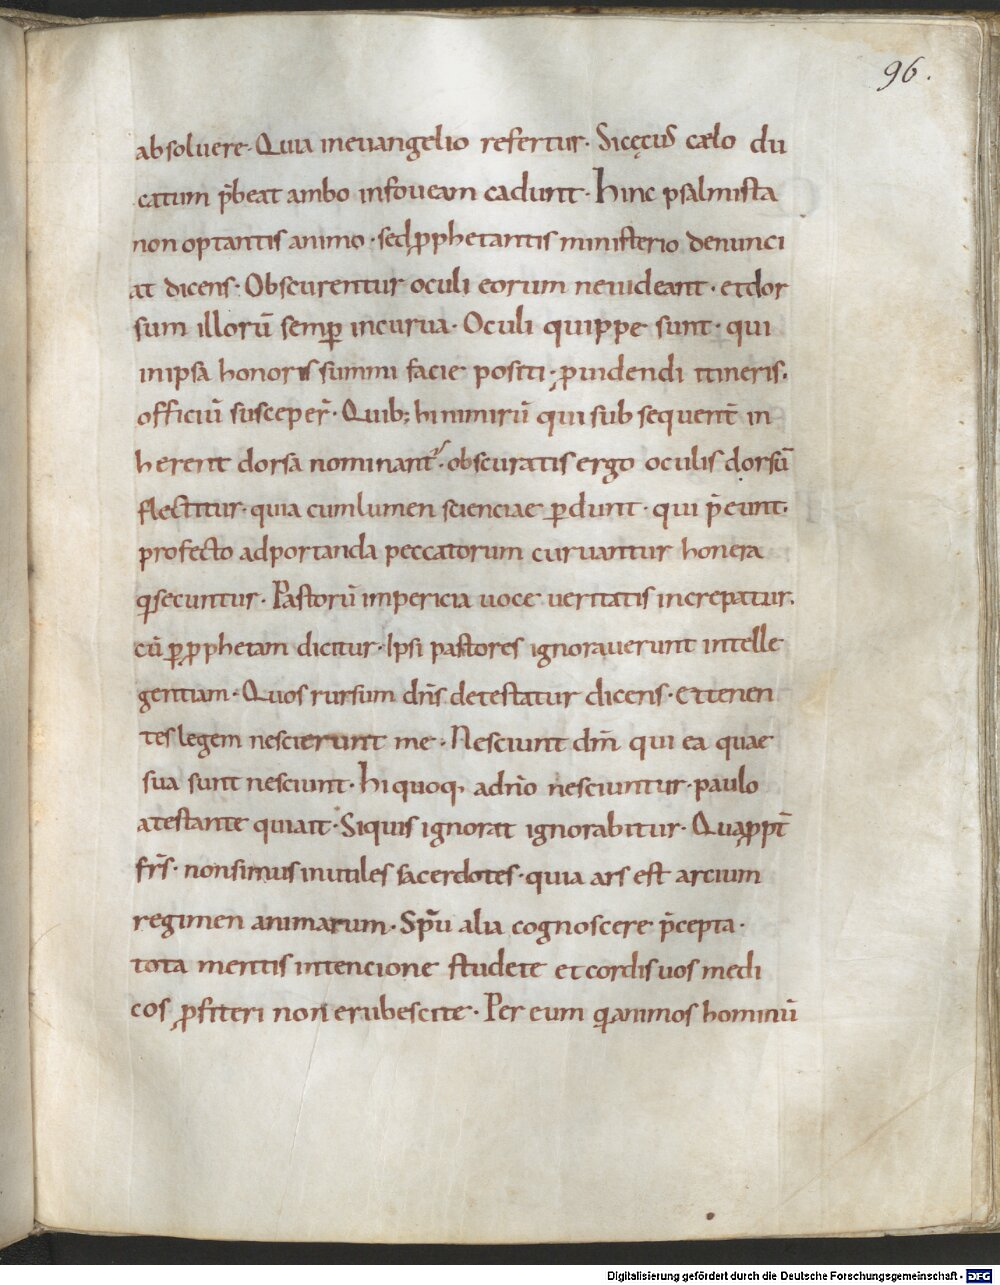 96.
absoluere. Quia ineuangelio refertur. Sicęcus cælo du
catum p̄beat ambo infoueam cadunt. hinc psalmista
non optantis animo. sedꝓphetantis ministerio denunci
at dicens. Obscurentur oculi eorum neuideant. et dor
sum illorū semꝑ incurua. Oculi quippe sunt. qui
inipsa honoris summi facie positi. ꝓuidendi itineris.
officiū susceper̄. Quib; hi nimirū qui sub sequent̄ in
herent dorsa nominant̄. obscuratis ergo oculis dorsū
flectitur. quia cumlumen scienciae ꝑdunt. qui p̄eunt.
profecto adportanda peccatorum curuantur honera
qͥsecuntur. Pastorū impericia uoce ueritatis increpatur.
cū ꝑꝓphetam dicitur. Ipsi pastores ignorauerunt intelle
gentiam. Quos rursum dn̄s detestatur dicens. et tenen
tes legem nescierunt me. Nesciunt dm̄ qui ea quae
sua sunt nesciunt. hi quoq, adn̄o nesciuntur. paulo
atestante quiait. Siquis ignorat ignorabitur. Quaꝓpt̄
fr̄s. nonsimus inutiles sacerdotes. quia ars est arcium
regimen animarum. Sp̄u alia cognoscere p̄cepta.
tota mentis intencione studete et cordis uos medi
cos ꝓfiteri non erubescite. Per eum qͥ animos hominū
Digitalisierung gefördert durch die Deutsche Forschungsgemeinschaft - DFG